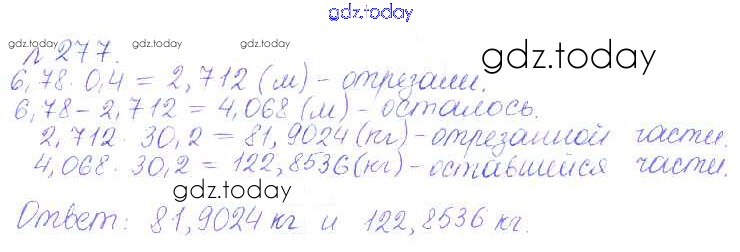 gdz.today
gdz.today gdz.today gdz.today
№ 277.
6,78 · 0,4 = 2,712 (м) - отрезали.
gdz.today
6,78 - 2,712 = 4,068 (м) - осталось.
2,712 · 30,2 = 81,9024 (кг) - отрезанной части.
4,068 · 30,2 = 122,8536 (кг) - оставшейся части.
gdz.today
Ответ: 81,9024 кг и 122,8536 кг.
gdz.today